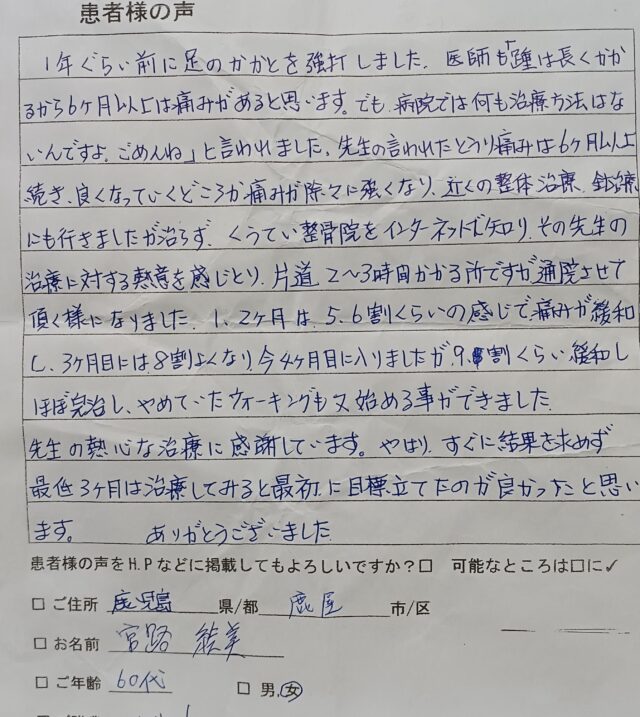 患者様の声
1年ぐらい前に足のかかとを強打しました。医師も「踵は長くかか
るから6ヶ月以上は痛みがあると思います。でも、病院では何も治療方法はな
いんですよ。ごめんね」と言われました。先生の言われたとうり痛みは6ヶ月以上
続き、良くなっていくどころか痛みが除々に強くなり、近くの整体治療、鍼治療
にも行きましたが治らず、くうてい整骨院をインターネットで知り、その先生の
治療に対する熱意を感じとり、片道 2〜3時間かかる所ですが通院させて
頂く様になりました。1、2ヶ月は、5、6割くらいの感じで痛みが緩和
し、3ヶ月目には8割よくなり、今4ヶ月目に入りましたが、9割くらい緩和し
ほぼ完治し、やめていたウォーキングも又始める事ができました。
先生の熱心な治療に感謝しています。やはり、すぐに結果を求めず
最低3ヶ月は治療してみると最初に目標立てたのが良かったと思い
ます。 ありがとうございました。
患者様の声をH.Pなどに掲載してもよろしいですか?□ 可能なところは□に✓
□ ご住所 鹿児島 県/都 鹿屋 市/区
□ お名前 宮路
□ ご年齢 60代 □ 男.女